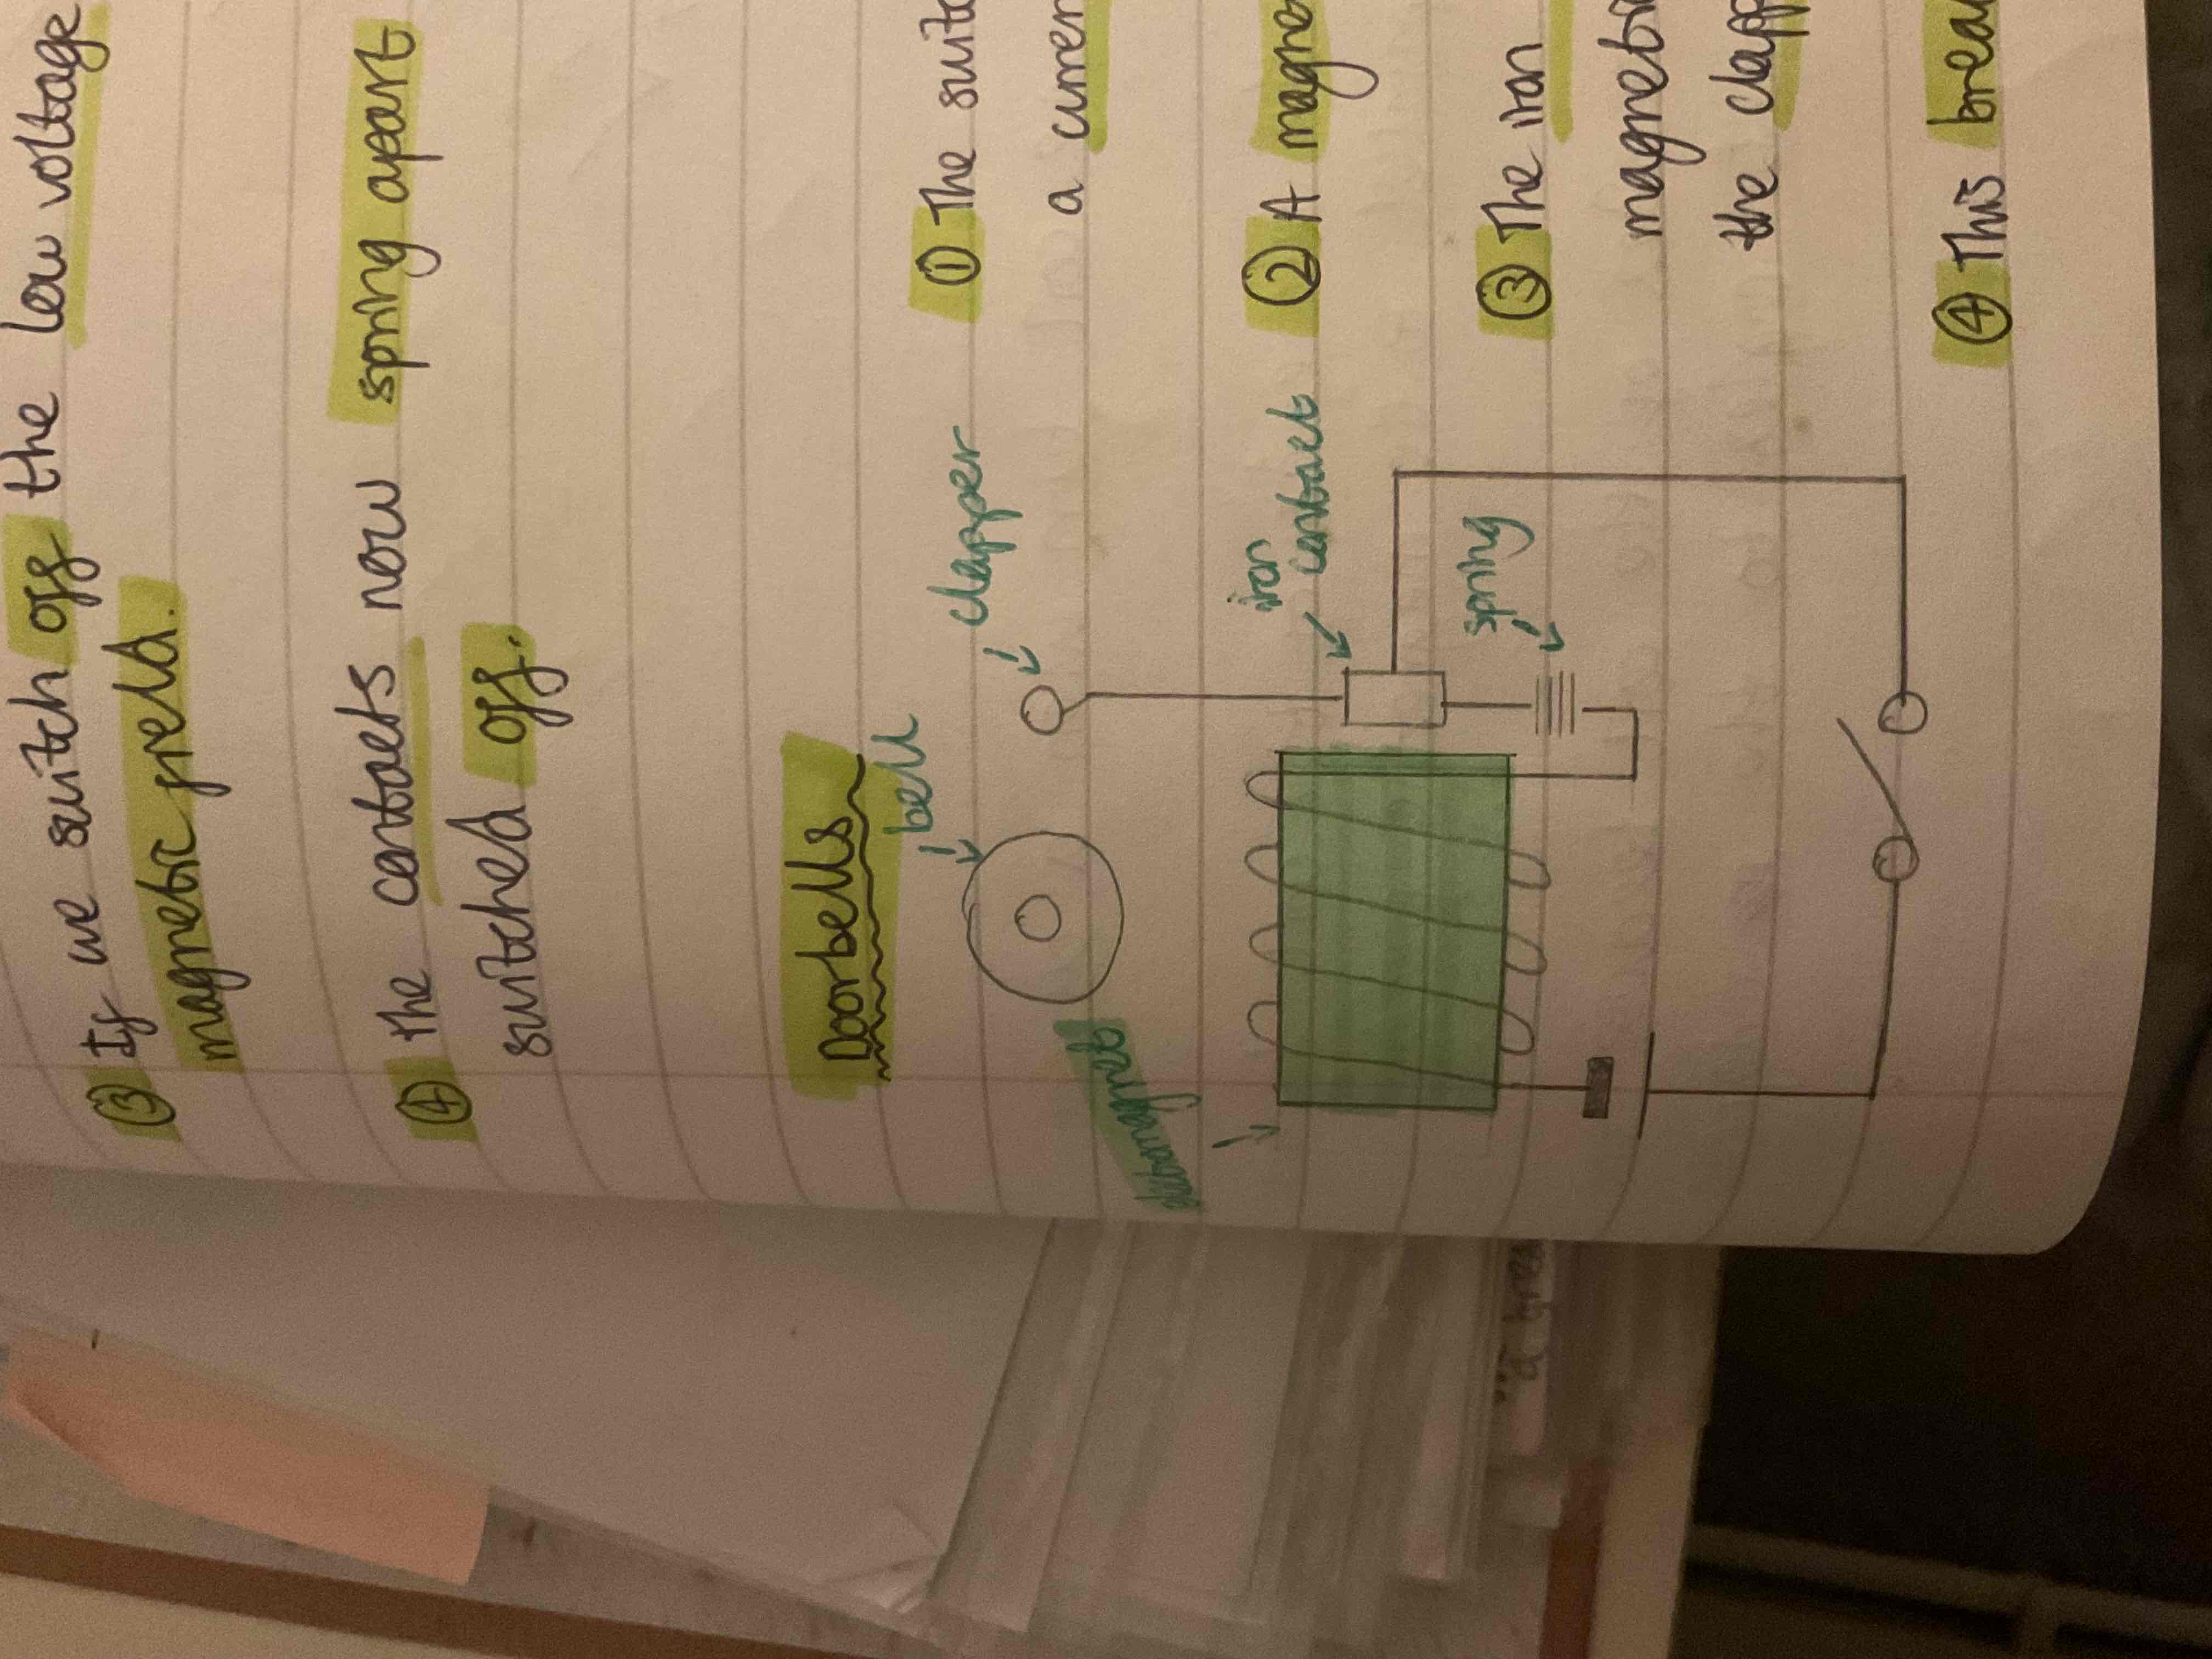 ③ If we switch off the low voltage
magnetic field.
④ the contacts now spring apart
switched off.
Doorbells
bell
clapper
electromagnet
iron
contact
spring
① The switc
a curren
② A magne
③ The iron
magnetic
the clapp
④ This brea